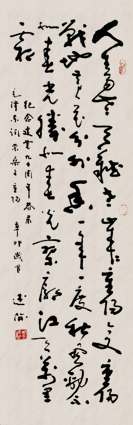 人生易老天难老岁岁重阳今又重阳
战地黄花分外香一年一度秋风劲不
似春光胜似春光寥廓江天万里
霜
纪念建党九十周年恭录
毛泽东词采桑子重阳
辛卯